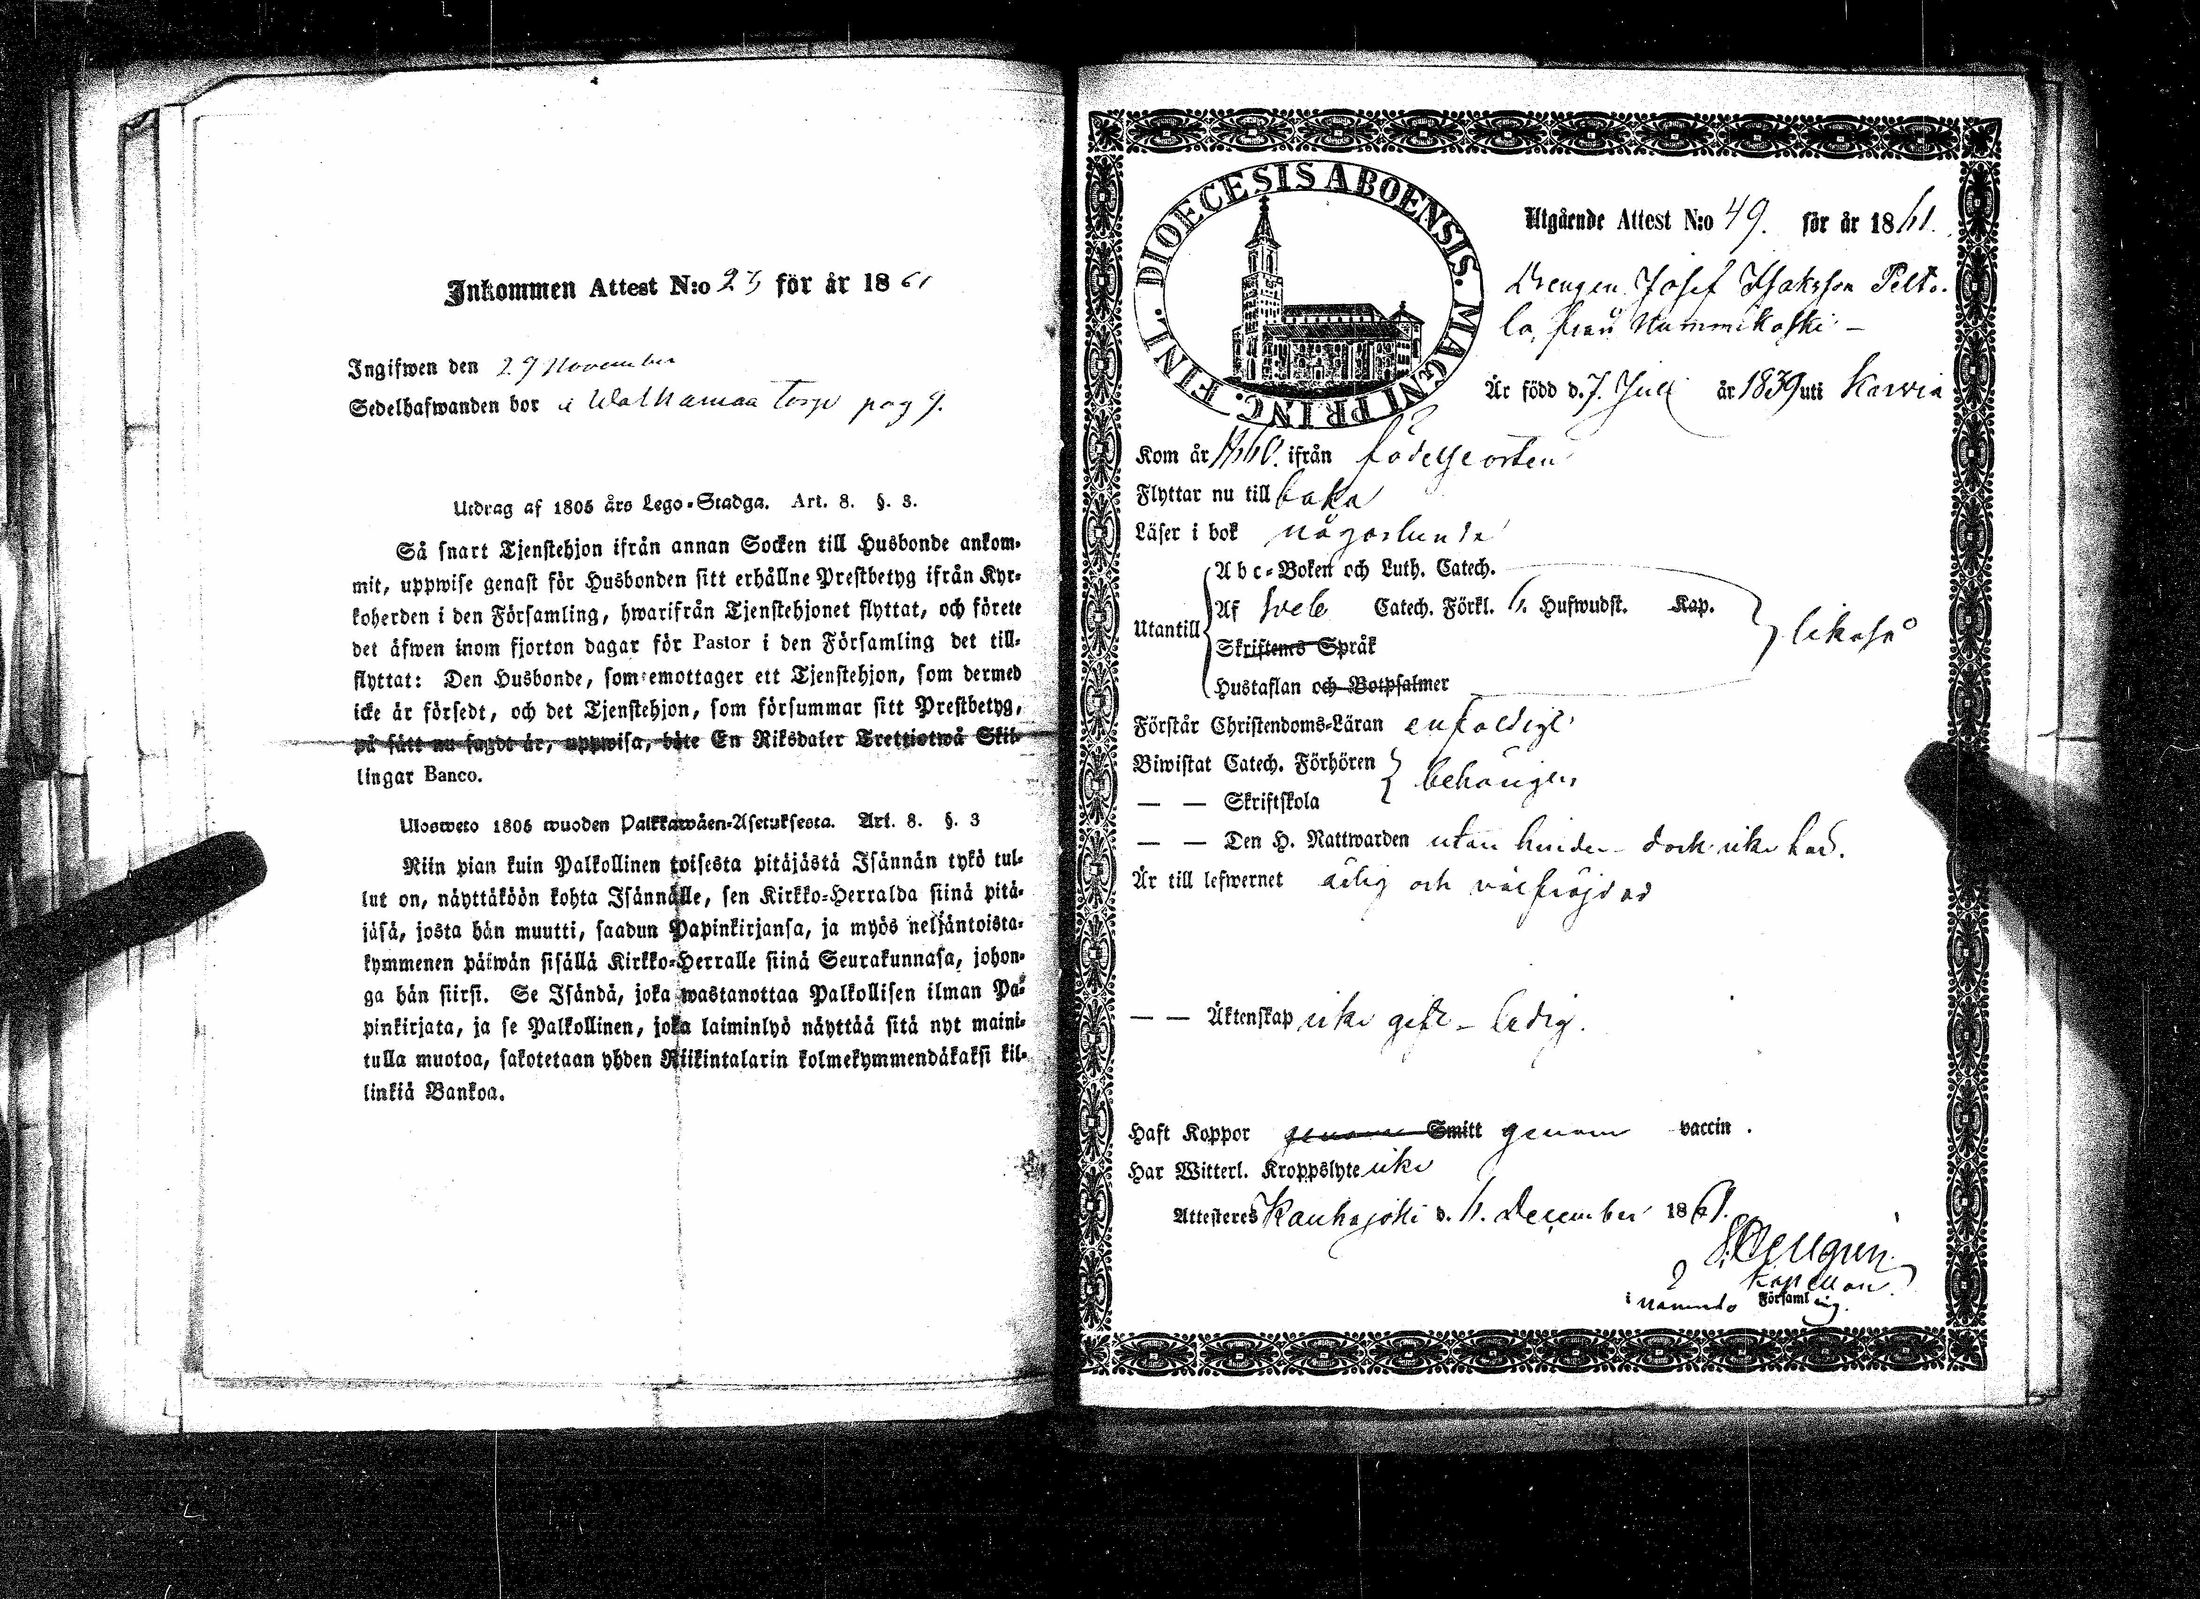 Inkommen Attest N:o 23 för år 1861
Ingifwen den 29 November
Sedelhafwanden bor i Walkamaa Torp pag 9.
Utdrag af 1805 års Lego-Stadga. Art. 8. §. 3.
Så snart Tjenstehjon ifrån annan Socken till Husbonde ankom-
mit, uppwise genast för Husbonden sitt erhållne Prestbetyg ifrån Kyr-
koherden i den Församling, hwarifrån Tjenstehjonet flyttat, och förete
det äfwen inom fjorton dagar för Pastor i den Församling det till-
flyttat: Den Husbonde, som emottager ett Tjenstehjon, som dermed
icke är försedt, och det Tjenstehjon, som försummar sitt Prestbetyg,
på sätt nu sagdt är, uppwisa, böte En Riksdaler Trettiotwå Skil-
lingar Banco.
Ulosweto 1805 wuoden Palkkawäen-Asetuksesta. Art. 8. §. 3
Niin pian kuin Palkollinen toisesta pitäjästä Isännän tykö tul-
lut on, näyttäköön kohta Isännälle, sen Kirkko-Herralda siinä pitä-
jäsä, josta hän muutti, saadun Papinkirjansa, ja myös neljäntoista-
kymmenen päiwän sisällä Kirkko-Herralle siinä Seurakunnasa, johon-
ga hän siirsi. Se Isändä, joka wastanottaa Palkollisen ilman Pa-
pinkirjata, ja se Palkollinen, joka laiminlyö näyttää sitä nyt maini-
tulla muotoa, sakotetaan yhden Riikintalarin kolmekymmendäkaksi kil-
linkiä Bankoa.
DIOECESIS ABOENSIS. MAGNI PRINC. FINL.
Utgående Attest N:o 49. för år 1861.
Drengen Josef Isaksson Pelto-
la, från Nummikoski
Är född d. 7. Juli år 1839 uti Karvia
Kom år 1860. ifrån födelseorten
Flyttar nu till baka
Läser i bok någorlunda
Utantill
Abc-Boken och Luth. Catech.
Af Sveb Catech. Förkl. 6. Hufwudst. Kap.
Skriftenes Språk
Hustaflan och Botpsalmer
likaså
Förstår Christendoms-Läran enfaldigt
Biwistat Catech. Förhören
— — Skriftskola
behörigen
— — Den H. Nattwarden utan hinder dock icke här.
Är till lefwernet ärlig och välfräjdad
— — Äktenskap icke gift – ledig.
Haft Koppor genom Smitt genom vaccin.
Har Witterl. Kroppslyte icke
Attesteres Kauhajoki d. 6. December 1861.
Kapellan
i nämnda Församling.